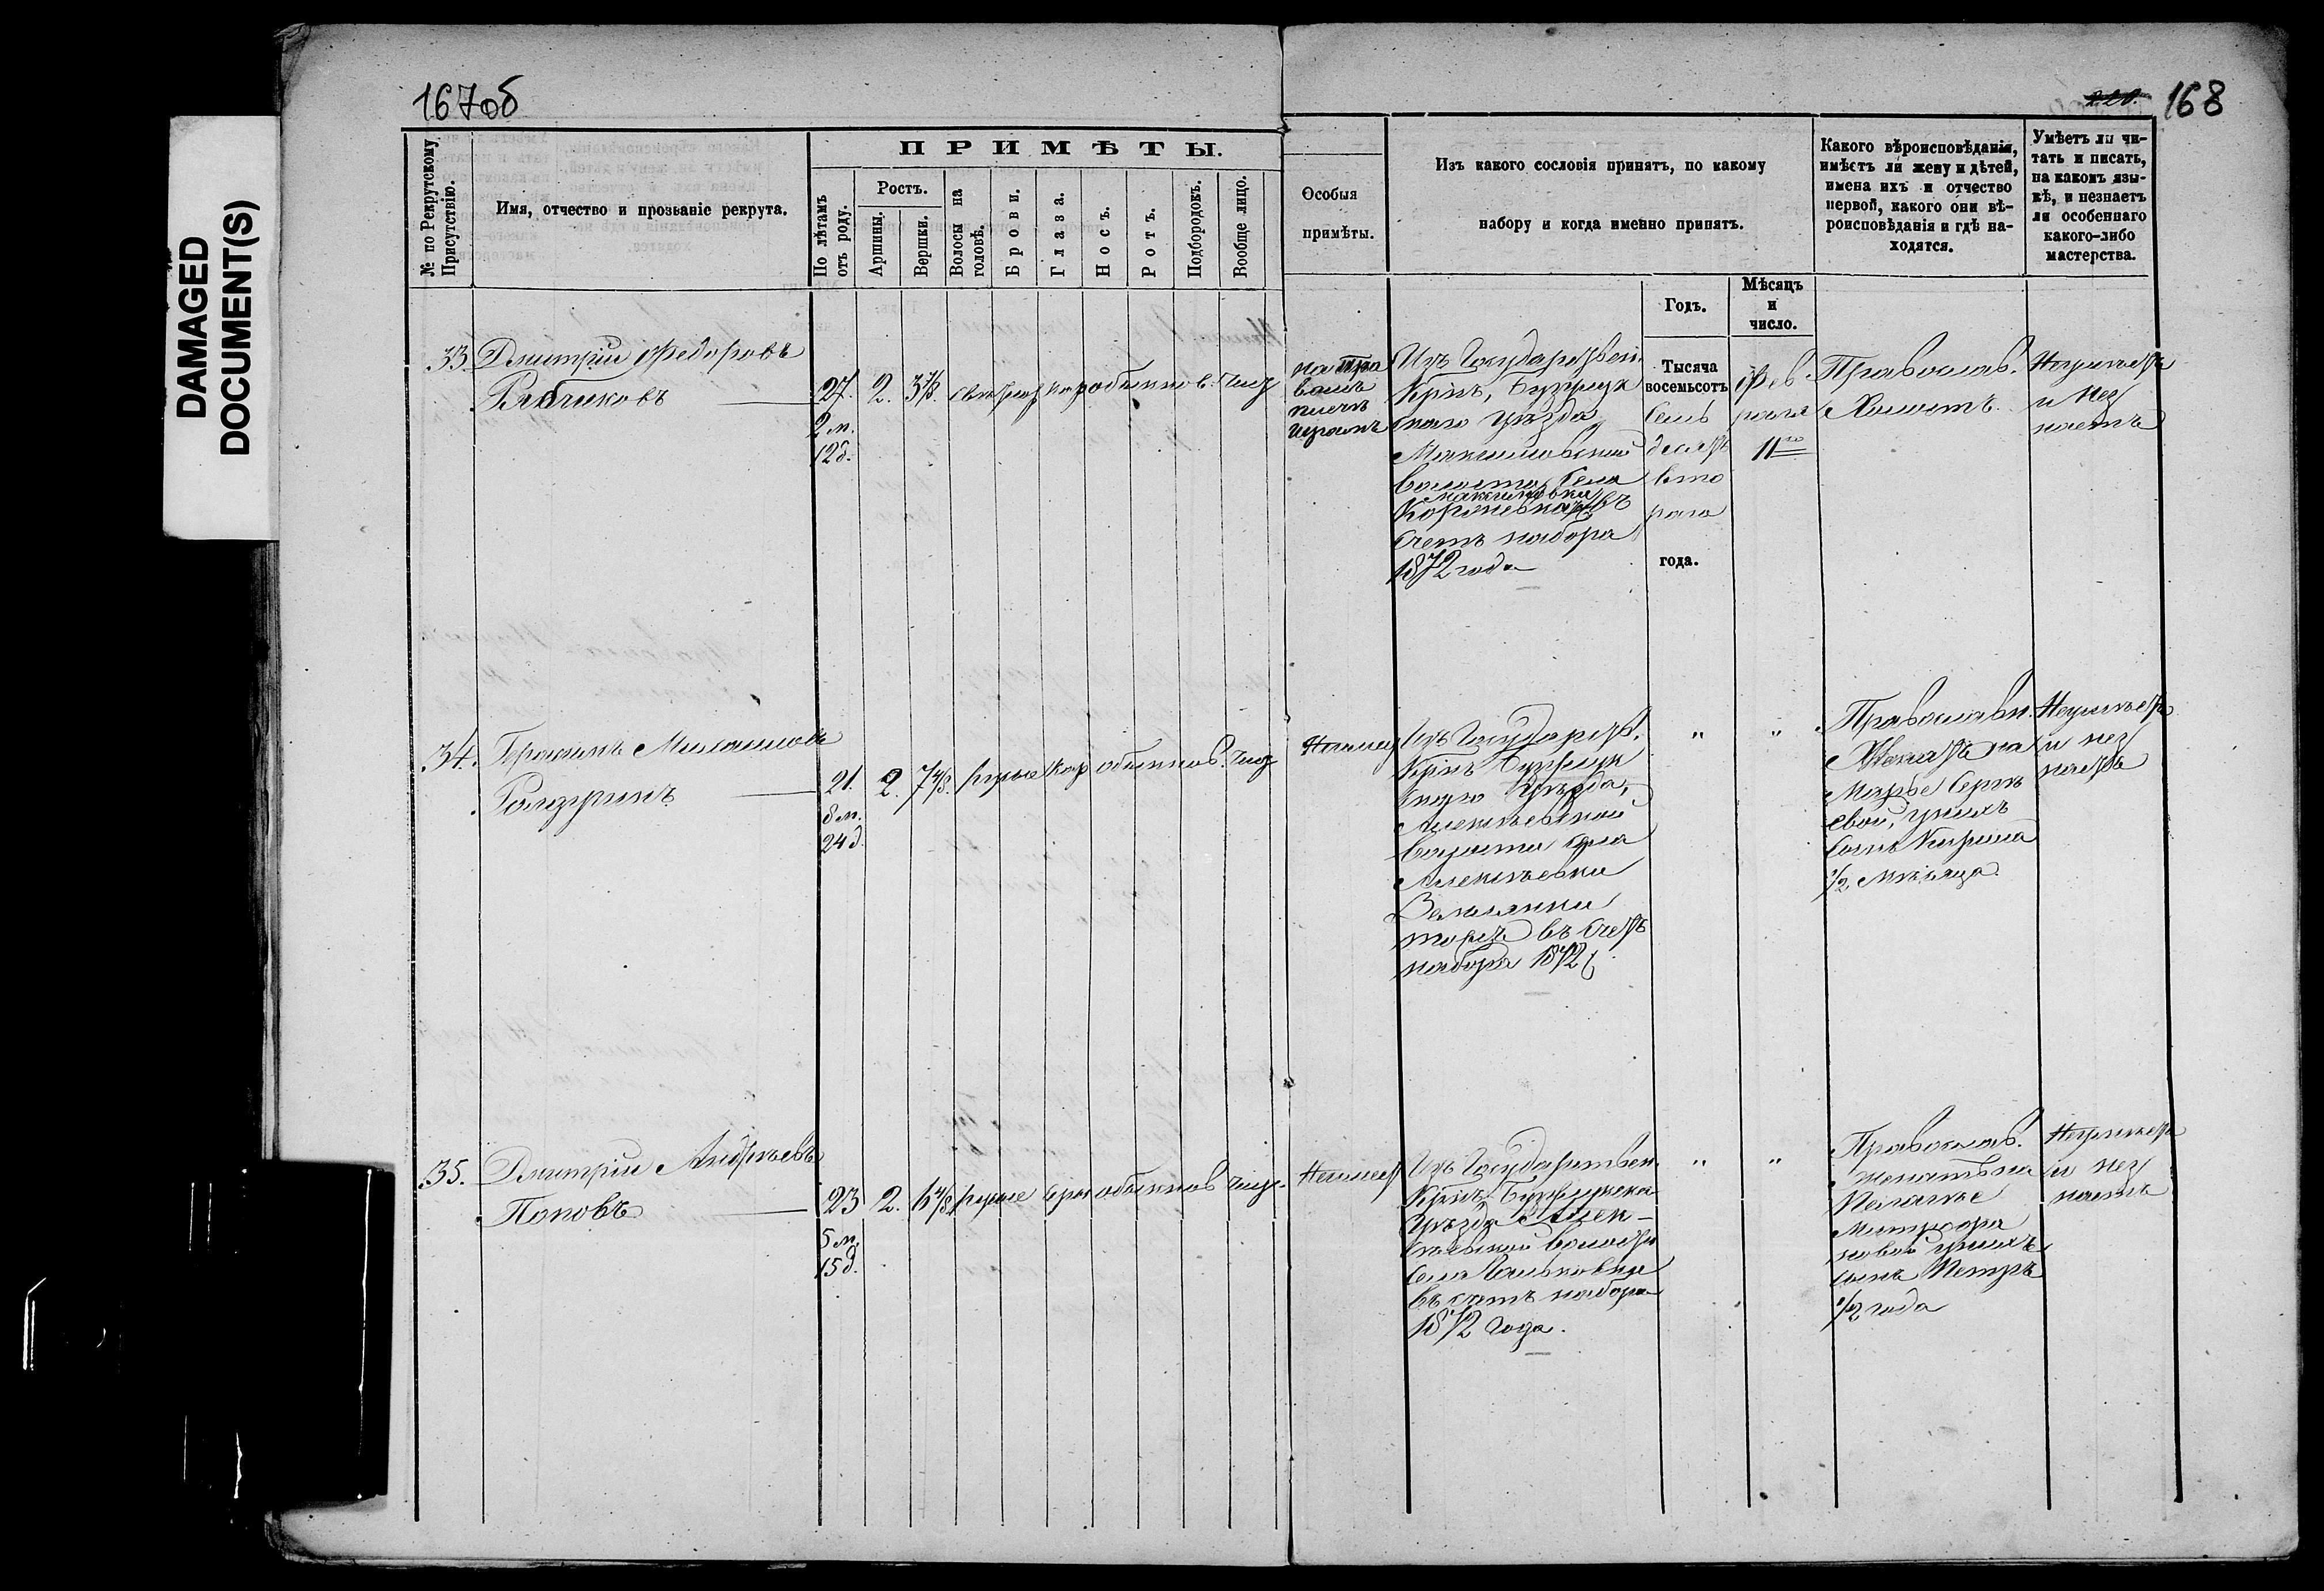 DAMAGED
DOCUMENT(S)
167об
220. 168
ПРИМѢТЫ.
№ по Рекрутскому
Присутствію.
Имя, отчество и прозваніе рекрута.
По лѣтамъ
отъ роду.
Ростъ.
Аршины.
Вершки.
Волосы на
головѣ.
Брови.
Глаза.
Носъ.
Ротъ.
Подбородокъ.
Вообще лицо.
Особыя
примѣты.
Изъ какого сословія принятъ, по какому
набору и когда именно принятъ.
Годъ.
Мѣсяцъ
и
число.
Какого вѣроисповѣданія,
имѣетъ ли жену и дѣтей,
имена ихъ и отчество
первой, какого они вѣ-
роисповѣданія и гдѣ на-
ходятся.
Умѣетъ ли чи-
тать и писать,
на какомъ язы-
кѣ, и незнаетъ
ли особеннаго
какого-либо
мастерства.
33. Дмитрій Федоровъ
Рябчиковъ
27. 2. обыкнов. чис
2 м.
12 д.
на пра
вомъ
плечѣ
шрамъ
Изъ Государствен.
Крнъ, Бузулук
скаго уѣзда
Максимовской
волости, села
Максимовки
въ
счетъ набора
1872 года
Тысяча
восемьсотъ
семь
десятъ
вто
раго
года.
Фев
раля
11го
Православ.
Холостъ.
Неумѣетъ
и нез
наетъ
34. Герасимъ Михайловъ
21. 2. русые кар обыкнов. чис
8 м.
24 д.
Изъ Государств.
Крнъ Бузулук
скаго уѣзда,
Алексѣевской
волости села
Алексѣевки
Землянки
тожъ въ счетъ
набора 1872
" "
Православн.
Женатъ на
Марье Сергѣ
евой, у нихъ
сынъ Кирила
1/2 мѣсяца.
Неумѣетъ
и нез
наетъ
35. Дмитрій Андрѣевъ
Поповъ
23 2. русые сѣр обыкнов чис.
5 м.
15 д.
Изъ Государствен.
Крнъ, Бузулукска
уѣзда Алек-
сѣевской волости
села
въ счетъ набора
1872 года.
" "
Православ.
женатъ на
Пелагѣе
Митрофа
новой у нихъ
сынъ Петръ
1/2 года
Неумѣетъ
и нез
наетъ